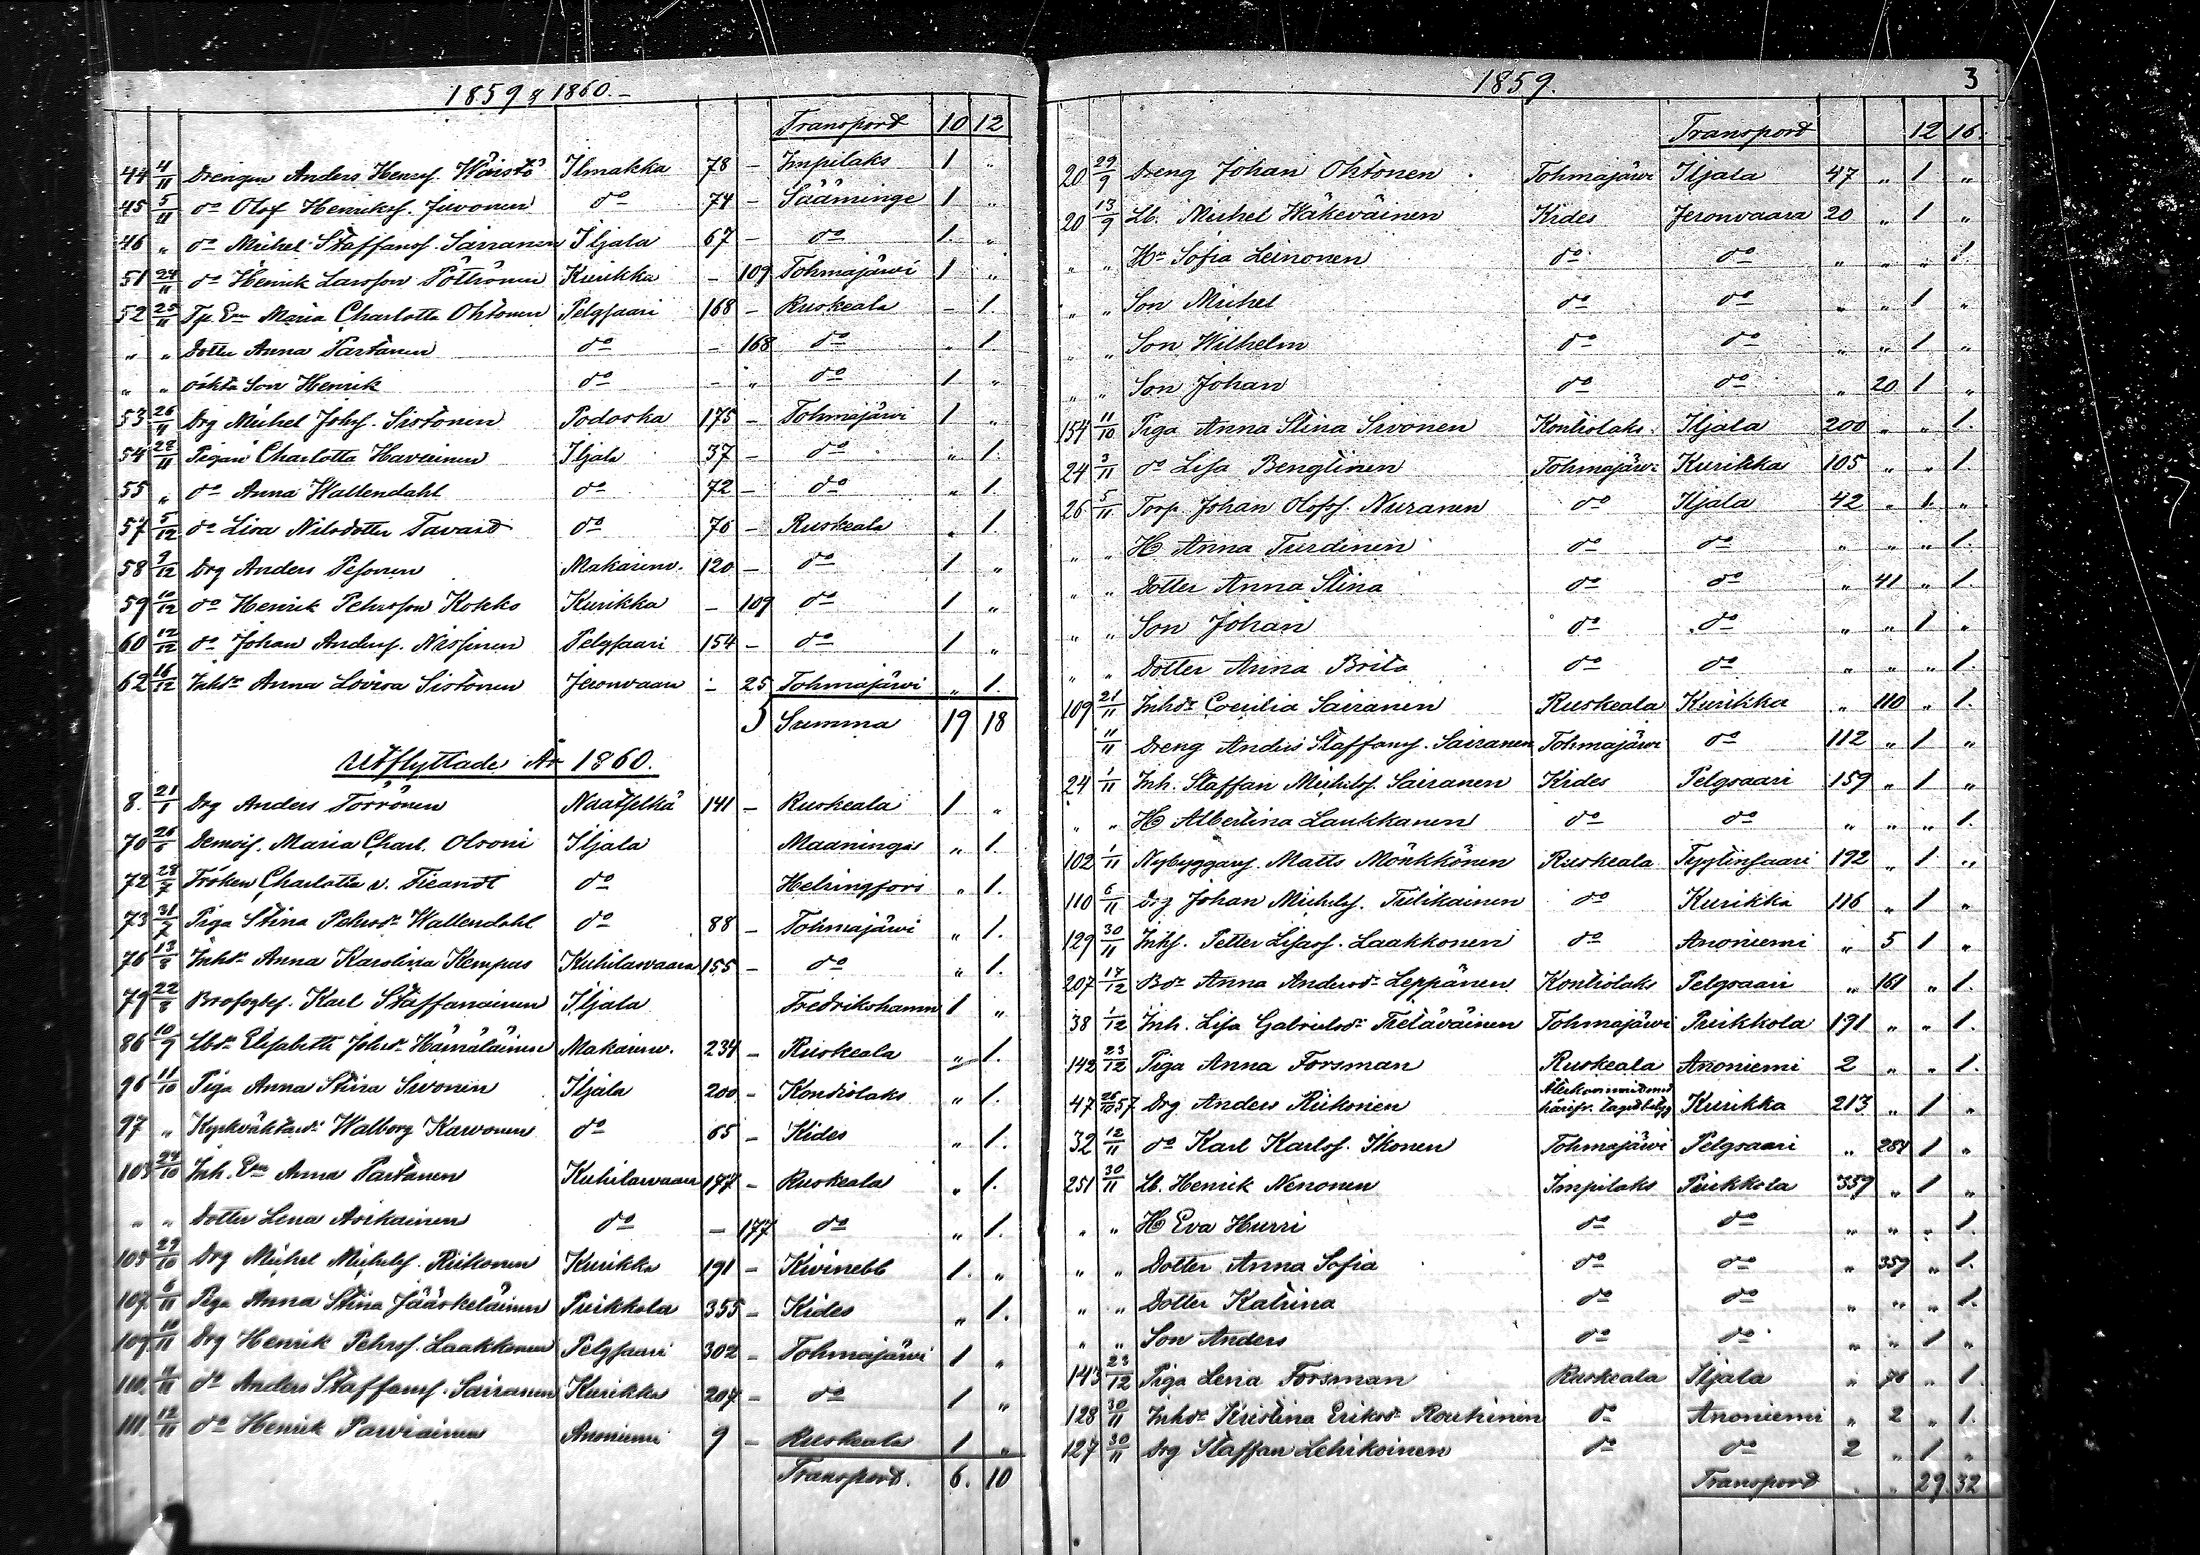 1859 & 1860.
Transport 10 12
44 4/11 Drengen Anders Henrs. Ilmakka 78 - Impilaks 1 "
45 5/11 do Olof Henrikss. Juvonen do 74 - Sääminge 1 "
46 " do Michel Staffanss. Sairanen Iljala 67 - do 1. "
51 24/11 do Henrik Larsson Pöllönen Kurikka - 109 Tohmajärvi 1 "
52 25/11 Tp. Enk. Maria Charlotta Ohtonen Pelgsaari 168 - Ruskeala - 1.
" " Dotter Anna Partanen do - 168 do " 1.
" " oäkta Son Henrik do - " do 1 "
53 26/11 Drg Michel Johss. Sistonen Podoska 175 - Tohmajärvi 1 "
54 28/11 Pigan Charlotta Haverinen Iljala 37 - do " 1.
55 " do Anna Wallendahl do 72 - do " 1.
57 5/12 do Lisa Nilsdotter Tavast do 70 - Ruskeala " 1.
58 9/12 Drg Anders Pesonen Makarinv. 120 - do 1 "
59 10/12 do Henrik Pehrsson Kokko Kurikka - 109 do 1 "
60 12/12 do Johan Anderss. Nissinen Pelgsaari 154 - do 1 "
62 16/12 Inhdr Anna Lovisa Sistonen Jeronvaara - 25 Tohmajärvi " 1.
Summa 19 18
Utflyttade År 1860.
8. 21/1 Drg Anders Torrönen Naatselkä 141 - Ruskeala 1 "
70 26/6 Demois. Maria Charl. Olsoni Iljala Maaninga " 1.
72 28/7 Fröken Charlotta v. Fieandt do Helsingfors " 1.
73 31/7 Piga Stina Pehrsdr Wallendahl do 88 - Tohmajärvi " 1.
76 13/8 Inhdr Anna Karolina Kempas Kuhilasvaara 155 - do " 1.
79 22/8 Karl Staffanainen Iljala Fredrikshamn 1 "
86 10/9 Lbdr Elisabeth Johsdr Hämäläinen Makarinv. 234 - Ruskeala " 1.
96 11/10 Piga Anna Stina Sivonen Iljala 200 - Kondiolaks " 1.
97 " Walborg Karvonen do 65 - Kides " 1.
103 24/10 Inh. Enk. Anna Partanen Kuhilasvaara 177 - Ruskeala " 1.
" " Dotter Lena Asikainen do - 177 do " 1.
105 29/10 Drg Michel Michelss. Riikonen Kurikka 191 - Kivinebb 1. "
107. 6/11 Piga Anna Stina Jääskeläinen Puikkola 355 - Kides " 1.
109 10/11 Drg Henrik Pehrss. Laakkonen Pelgsaari 302 - Tohmajärvi 1 "
110. 11/11 do Anders Staffanss. Sairanen Kurikka 207 - do 1 "
111. 12/11 do Henrik Parviainen Anoniemi 9 - Ruskeala 1 "
Transport. 6. 10
1859. 3
Transport 12 16.
20 29/9 Dreng Johan Ohtonen Tohmajärvi Iljala 47 " 1 "
20 13/9 Lb. Michel Wäkeväinen Kides Jeronvaara 20 " 1 "
" " Hu Sofia Leinonen do do " " " 1.
" " Son Michel do do " " 1 "
" " Son Wilhelm do do " " 1 "
" " Son Johan do do " 20 1 "
154 11/10 Piga Anna Stina Sivonen Kontiolaks. Iljala 200 " " 1.
24 3/11 do Lisa Bengtinen Tohmajärvi Kurikka 105 " " 1.
26 5/11 Torp. Johan Olofss. Nuranen do Iljala 42 " 1. "
" " H. Anna Turdinen do do " " " 1.
" " Dotter Anna Stina do do " 41 " 1.
" " Son Johan do do " " 1 "
" " Dotter Anna Brita do do " " " 1.
109 21/11 Inhdr Coecilia Sairanen Ruskeala Kurikka " 110 " 1.
11/11 Dreng Anders Staffanss. Sairanen Tohmajärvi do 112 " 1 "
24 1/11 Inh. Staffan Michelss. Sairanen Kides Pelgsaari 159 " 1 "
" " H Albertina Laukkanen do do " " " 1.
102 1/11 Nybyggars. Matts Mönkkönen Ruskeala Tyytinsaari 192 " 1 "
110 6/11 Drg Johan Michelss. Tulikainen do Kurikka 116 " 1 "
129 30/11 Inhs. Petter Lisass. Laakkonen do Anoniemi " 5 1 "
207 17/12 Bdr Anna Andersdr Leppänen Kontiolaks Pelgsaari " 161 " 1.
38 1/12 Inh. Lisa Gabrielsdr Tietäväinen Tohmajärvi Puikkola 191 " " 1.
142 23/12 Piga Anna Forsman Ruskeala Anoniemi 2 " " 1.
47 26/10 57 Drg Anders Riikonen Återkommit med härifr. taget betyg Kurikka 213 " 1 "
32 12/11 do Karl Karlss. Ikonen Tohmajärvi Pelgsaari " 284 1 "
251 30/11 Lb. Henrik Nenonen Impilaks Puikkola 359 " 1 "
" " H Eva Hurri do do " " " 1.
" " Dotter Anna Sofia do do " 359 " 1.
" " Dotter Katrina do do " " " 1.
" " Son Anders do do " " 1 "
143 23/12 Piga Lena Forsman Ruskeala Iljala " 76 " 1.
128 30/11 Inhdr Kristina Eriksdr Rouhinen do Anoniemi " 2 " 1.
127 30/11 Drg Staffan Lehikoinen do do 2 " 1 "
Transport " " 29. 32